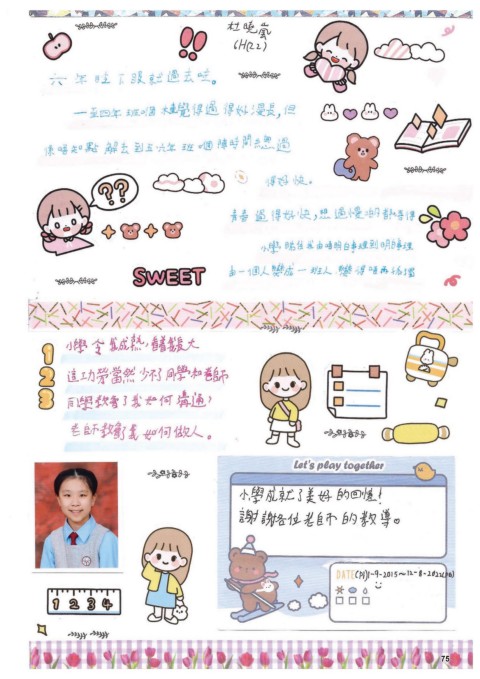 杜曉嵐
6H(22)
六年哇了眼就過去哇。
一至四年班嗰 樣覺得過 得好漫長,但
係唔知點 解去到五六年班嗰陣時間總過
得好快。
青春過得好快,想過慢啲都唔得
小學 階 由唔明白事理到明事理
由一個人變成一班人 變得唔再
SWEET
1
2
3
小學 令我成熟,長大
這功勞當然少不了同學和老師
同學教會了我如何溝通,
老師教會我如何做人。
Let's play together
小學成就了美好的回憶!
謝謝各位老師的教導。
DATE 1-9-2015~12-8-2021
1 2 3 4
75